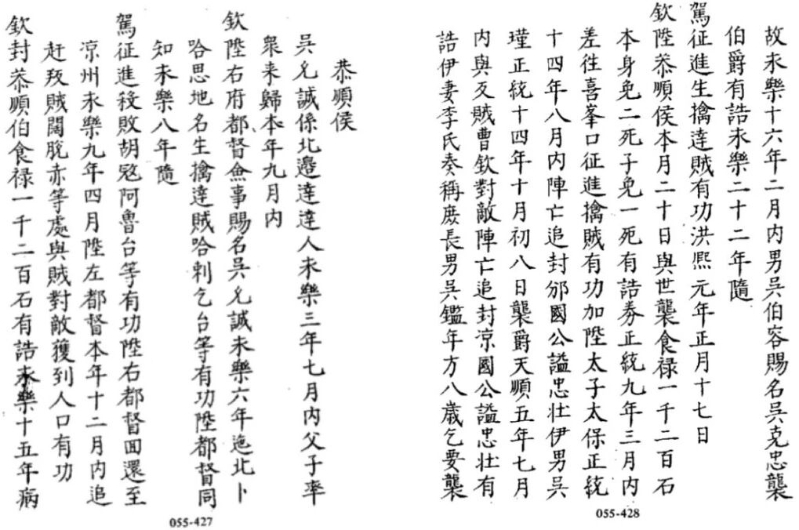 恭順侯
吳允誠係北邊達達人永樂三年七月内父子率
衆来歸本年九月内
欽陞右府都督僉事賜名吳允誠永樂六年迤北卜
哈思地名生擒達賊哈剌乞台等有功陞都督同
知永樂八年隨
駕征進殺敗胡寇阿魯台等有功陞右都督回還至
凉州永樂九年四月陞左都督本年十二月内追
赶叛賊闊脫赤等處與賊對敵獲到人口有功
欽封恭順伯食禄一千二百石有誥永樂十五年病
055-427
故永樂十六年二月内男吳伯容賜名吳克忠襲
伯爵有誥永樂二十二年隨
駕征進生擒達賊有功洪熙元年正月十七日
欽陞恭順侯本月二十日與世襲食禄一千二百石
本身免二死子免一死有誥券正統九年三月内
差徃喜峯口征進擒賊有功加陞太子太保正統
十四年八月内陣亡追封邠國公謚忠壯伊男吳
瑾正統十四年十月初八日襲爵天順五年七月
内與反賊曹欽對敵陣亡追封凉國公謚忠壯有
誥伊妻李氏奏稱庶長男吳鑑年方八歲乞要襲
055-428